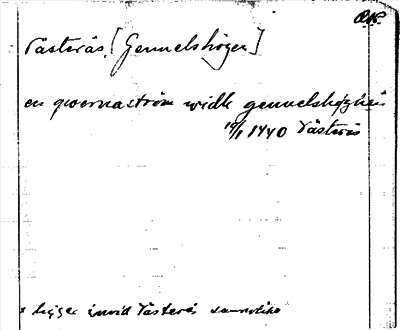 Västerås. [Gennelshögen]
en qwernaström widh gennelshøghen
19/1 1440 Västerås
ligger invid Västerås